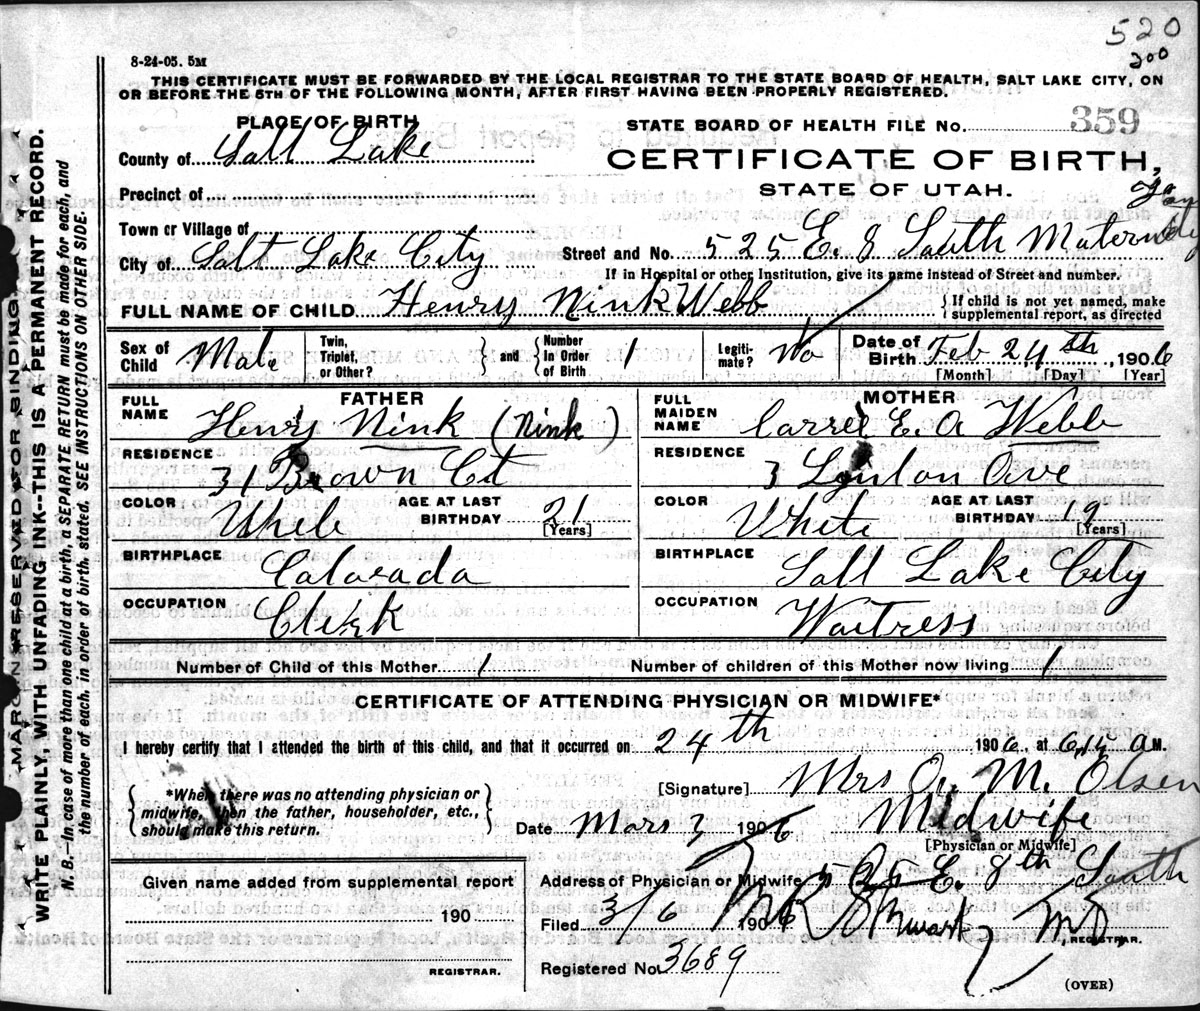 520
200
8-24-05. 5M
THIS CERTIFICATE MUST BE FORWARDED BY THE LOCAL REGISTRAR TO THE STATE BOARD OF HEALTH, SALT LAKE CITY, ON
OR BEFORE THE 5TH OF THE FOLLOWING MONTH, AFTER FIRST HAVING BEEN PROPERLY REGISTERED.
PLACE OF BIRTH
County of Salt Lake
Precinct of
Town or Village of
City of Salt Lake City
STATE BOARD OF HEALTH FILE No. 359
CERTIFICATE OF BIRTH,
STATE OF UTAH.
Street and No. 525 E. 8 South Maternity
If in Hospital or other Institution, give its name instead of Street and number.
FULL NAME OF CHILD Henry Nink Webb
{If child is not yet named, make
supplemental report, as directed
Sex of Child Male
Twin, Triplet, or Other? } and { Number In Order of Birth 1
Legiti-mate? No
Date of Birth Feb 24th 1906
[Month] [Day] [Year]
FATHER
FULL NAME Henry Nink (Nink)
RESIDENCE 31 Brown Ct
COLOR White AGE AT LAST BIRTHDAY 21 [Years]
BIRTHPLACE Colorada
OCCUPATION Clerk
MOTHER
FULL MAIDEN NAME Carrie E. A Webb
RESIDENCE 3 Lynton Ave
COLOR White AGE AT LAST BIRTHDAY 19 [Years]
BIRTHPLACE Salt Lake City
OCCUPATION Waitress
Number of Child of this Mother 1 Number of children of this Mother now living 1
CERTIFICATE OF ATTENDING PHYSICIAN OR MIDWIFE*
I hereby certify that I attended the birth of this child, and that it occurred on 24th 1906, at 6,15 A M.
{*When there was no attending physician or
midwife, then the father, householder, etc.,
should make this return.}
[Signature] Mrs A. M. Olsen
Date Mars 3 1906 Midwife
[Physician or Midwife]
Address of Physician or Midwife 525 E. 8th South
Filed 3/6 1906 M.D. REGISTRAR.
Registered No. 3689
(OVER)
Given name added from supplemental report
190
REGISTRAR.
MARGIN RESERVED FOR BINDING.
WRITE PLAINLY, WITH UNFADING INK--THIS IS A PERMANENT RECORD.
N. B.—In case of more than one child at a birth, a SEPARATE RETURN must be made for each, and
the number of each, in order of birth, stated. SEE INSTRUCTIONS ON OTHER SIDE.